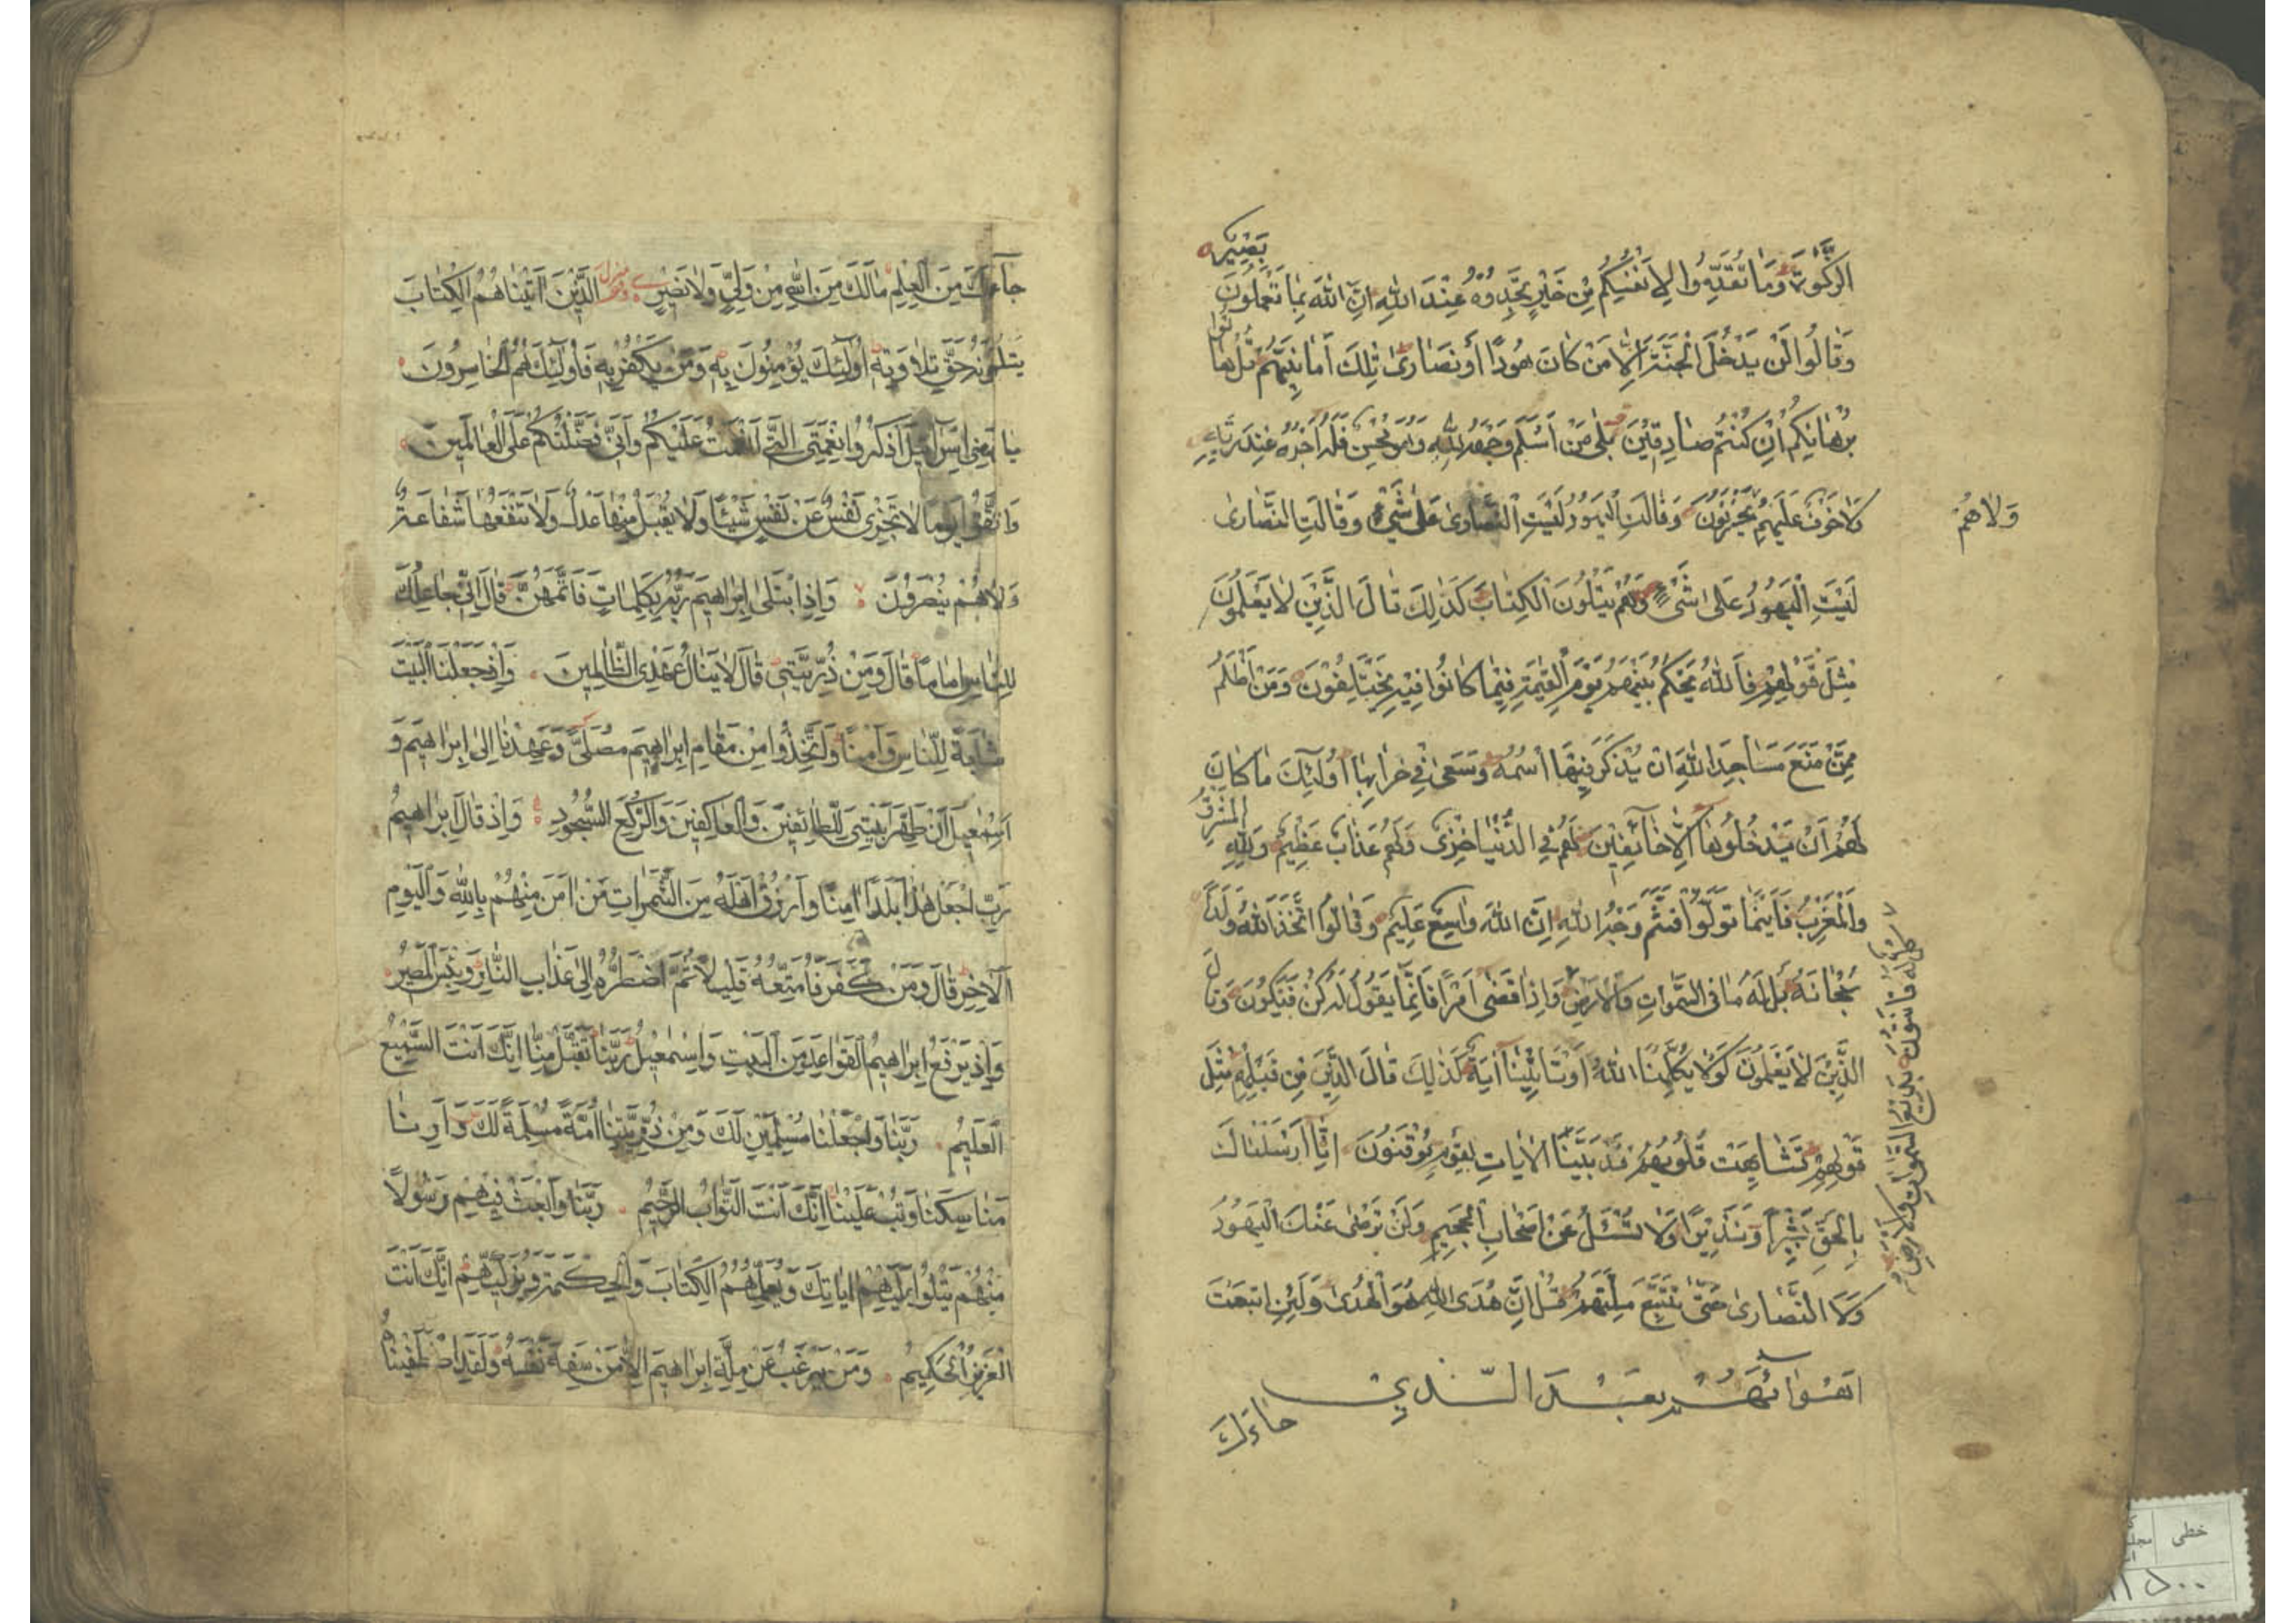 بَصِيرٌ
الزَّكٰوةَ وَمَا تُقَدِّمُوا لِاَنْفُسِكُمْ مِنْ خَيْرٍ تَجِدُوهُ عِنْدَ اللّٰهِ اِنَّ اللّٰهَ بِمَا تَعْمَلُونَ
وَقَالُوا لَنْ يَدْخُلَ الْجَنَّةَ اِلَّا مَنْ كَانَ هُودًا اَوْ نَصَارٰى تِلْكَ اَمَانِيُّهُمْ قُلْ هَاتُوا
بُرْهَانَكُمْ اِنْ كُنْتُمْ صَادِقِينَ بَلٰى مَنْ اَسْلَمَ وَجْهَهُ لِلّٰهِ وَهُوَ مُحْسِنٌ فَلَهُ اَجْرُهُ عِنْدَ رَبِّهِ
وَلَا خَوْفٌ عَلَيْهِمْ يَحْزَنُونَ وَقَالَتِ الْيَهُودُ لَيْسَتِ النَّصَارٰى عَلٰى شَيْءٍ وَقَالَتِ النَّصَارٰى
وَلَا هُمْ
لَيْسَتِ الْيَهُودُ عَلٰى شَيْءٍ وَهُمْ يَتْلُونَ الْكِتَابَ كَذٰلِكَ قَالَ الَّذِينَ لَا يَعْلَمُونَ
مِثْلَ قَوْلِهِمْ فَاللّٰهُ يَحْكُمُ بَيْنَهُمْ يَوْمَ الْقِيٰمَةِ فِيمَا كَانُوا فِيهِ يَخْتَلِفُونَ وَمَنْ اَظْلَمُ
مِمَّنْ مَنَعَ مَسَاجِدَ اللّٰهِ اَنْ يُذْكَرَ فِيهَا اسْمُهُ وَسَعٰى فِي خَرَابِهَا اُولٰئِكَ مَا كَانَ
لَهُمْ اَنْ يَدْخُلُوهَا اِلَّا خَائِفِينَ لَهُمْ فِي الدُّنْيَا خِزْيٌ وَلَهُمْ عَذَابٌ عَظِيمٌ وَلِلّٰهِ الْمَشْرِقُ
وَالْمَغْرِبُ فَاَيْنَمَا تُوَلُّوا فَثَمَّ وَجْهُ اللّٰهِ اِنَّ اللّٰهَ وَاسِعٌ عَلِيمٌ وَقَالُوا اتَّخَذَ اللّٰهُ وَلَدًا
سُبْحَانَهُ بَلْ لَهُ مَا فِي السَّمٰوَاتِ وَالْاَرْضِ وَاِذَا قَضٰى اَمْرًا فَاِنَّمَا يَقُولُ لَهُ كُنْ فَيَكُونُ وَقَالَ
كُلٌّ لَهُ قَانِتُونَ بَدِيعُ السَّمٰوَاتِ وَالْاَرْضِ
الَّذِينَ لَا يَعْلَمُونَ لَوْلَا يُكَلِّمُنَا اللّٰهُ اَوْ تَاْتِينَا اٰيَةٌ كَذٰلِكَ قَالَ الَّذِينَ مِنْ قَبْلِهِمْ مِثْلَ
قَوْلِهِمْ تَشَابَهَتْ قُلُوبُهُمْ قَدْ بَيَّنَّا الْاٰيَاتِ لِقَوْمٍ يُوقِنُونَ اِنَّا اَرْسَلْنَاكَ
بِالْحَقِّ بَشِيرًا وَنَذِيرًا وَلَا تُسْئَلُ عَنْ اَصْحَابِ الْجَحِيمِ وَلَنْ تَرْضٰى عَنْكَ الْيَهُودُ
وَلَا النَّصَارٰى حَتّٰى تَتَّبِعَ مِلَّتَهُمْ قُلْ اِنَّ هُدَى اللّٰهِ هُوَ الْهُدٰى وَلَئِنِ اتَّبَعْتَ
اَهْوَائَهُمْ بَعْدَ الَّذِي
جَاءَكَ
جَاءَكَ مِنَ الْعِلْمِ مَا لَكَ مِنَ اللّٰهِ مِنْ وَلِيٍّ وَلَا نَصِيرٍ الَّذِينَ اٰتَيْنَاهُمُ الْكِتَابَ
يَتْلُونَهُ حَقَّ تِلَاوَتِهِ اُولٰئِكَ يُؤْمِنُونَ بِهِ وَمَنْ يَكْفُرْ بِهِ فَاُولٰئِكَ هُمُ الْخَاسِرُونَ
يَا بَنِي اِسْرَائِيلَ اذْكُرُوا نِعْمَتِيَ الَّتِي اَنْعَمْتُ عَلَيْكُمْ وَاَنِّي فَضَّلْتُكُمْ عَلَى الْعَالَمِينَ
وَاتَّقُوا يَوْمًا لَا تَجْزِي نَفْسٌ عَنْ نَفْسٍ شَيْئًا وَلَا يُقْبَلُ مِنْهَا عَدْلٌ وَلَا تَنْفَعُهَا شَفَاعَةٌ
وَلَا هُمْ يُنْصَرُونَ وَاِذِ ابْتَلٰى اِبْرَاهِيمَ رَبُّهُ بِكَلِمَاتٍ فَاَتَمَّهُنَّ قَالَ اِنِّي جَاعِلُكَ
لِلنَّاسِ اِمَامًا قَالَ وَمِنْ ذُرِّيَّتِي قَالَ لَا يَنَالُ عَهْدِي الظَّالِمِينَ وَاِذْ جَعَلْنَا الْبَيْتَ
مَثَابَةً لِلنَّاسِ وَاَمْنًا وَاتَّخِذُوا مِنْ مَقَامِ اِبْرَاهِيمَ مُصَلًّى وَعَهِدْنَا اِلٰى اِبْرَاهِيمَ وَ
اِسْمٰعِيلَ اَنْ طَهِّرَا بَيْتِيَ لِلطَّائِفِينَ وَالْعَاكِفِينَ وَالرُّكَّعِ السُّجُودِ وَاِذْ قَالَ اِبْرَاهِيمُ
رَبِّ اجْعَلْ هٰذَا بَلَدًا اٰمِنًا وَارْزُقْ اَهْلَهُ مِنَ الثَّمَرَاتِ مَنْ اٰمَنَ مِنْهُمْ بِاللّٰهِ وَالْيَوْمِ
الْاٰخِرِ قَالَ وَمَنْ كَفَرَ فَاُمَتِّعُهُ قَلِيلًا ثُمَّ اَضْطَرُّهُ اِلٰى عَذَابِ النَّارِ وَبِئْسَ الْمَصِيرُ
وَاِذْ يَرْفَعُ اِبْرَاهِيمُ الْقَوَاعِدَ مِنَ الْبَيْتِ وَاِسْمٰعِيلُ رَبَّنَا تَقَبَّلْ مِنَّا اِنَّكَ اَنْتَ السَّمِيعُ
الْعَلِيمُ رَبَّنَا وَاجْعَلْنَا مُسْلِمَيْنِ لَكَ وَمِنْ ذُرِّيَّتِنَا اُمَّةً مُسْلِمَةً لَكَ وَاَرِنَا
مَنَاسِكَنَا وَتُبْ عَلَيْنَا اِنَّكَ اَنْتَ التَّوَّابُ الرَّحِيمُ رَبَّنَا وَابْعَثْ فِيهِمْ رَسُولًا
مِنْهُمْ يَتْلُوا عَلَيْهِمْ اٰيَاتِكَ وَيُعَلِّمُهُمُ الْكِتَابَ وَالْحِكْمَةَ وَيُزَكِّيهِمْ اِنَّكَ اَنْتَ
الْعَزِيزُ الْحَكِيمُ وَمَنْ يَرْغَبُ عَنْ مِلَّةِ اِبْرَاهِيمَ اِلَّا مَنْ سَفِهَ نَفْسَهُ وَلَقَدِ اصْطَفَيْنَاهُ
خطی